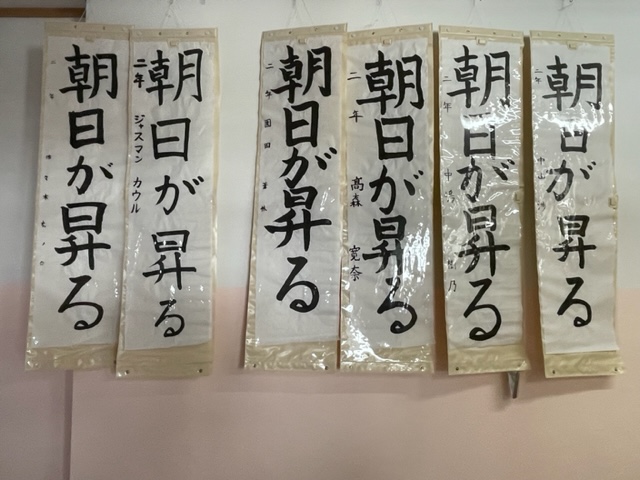 朝日が昇る
二年
朝日が昇る
二年 高森 寛奈
朝日が昇る
二年
朝日が昇る
二年 ジャスマン カウル
朝日が昇る
朝日が昇る
二年